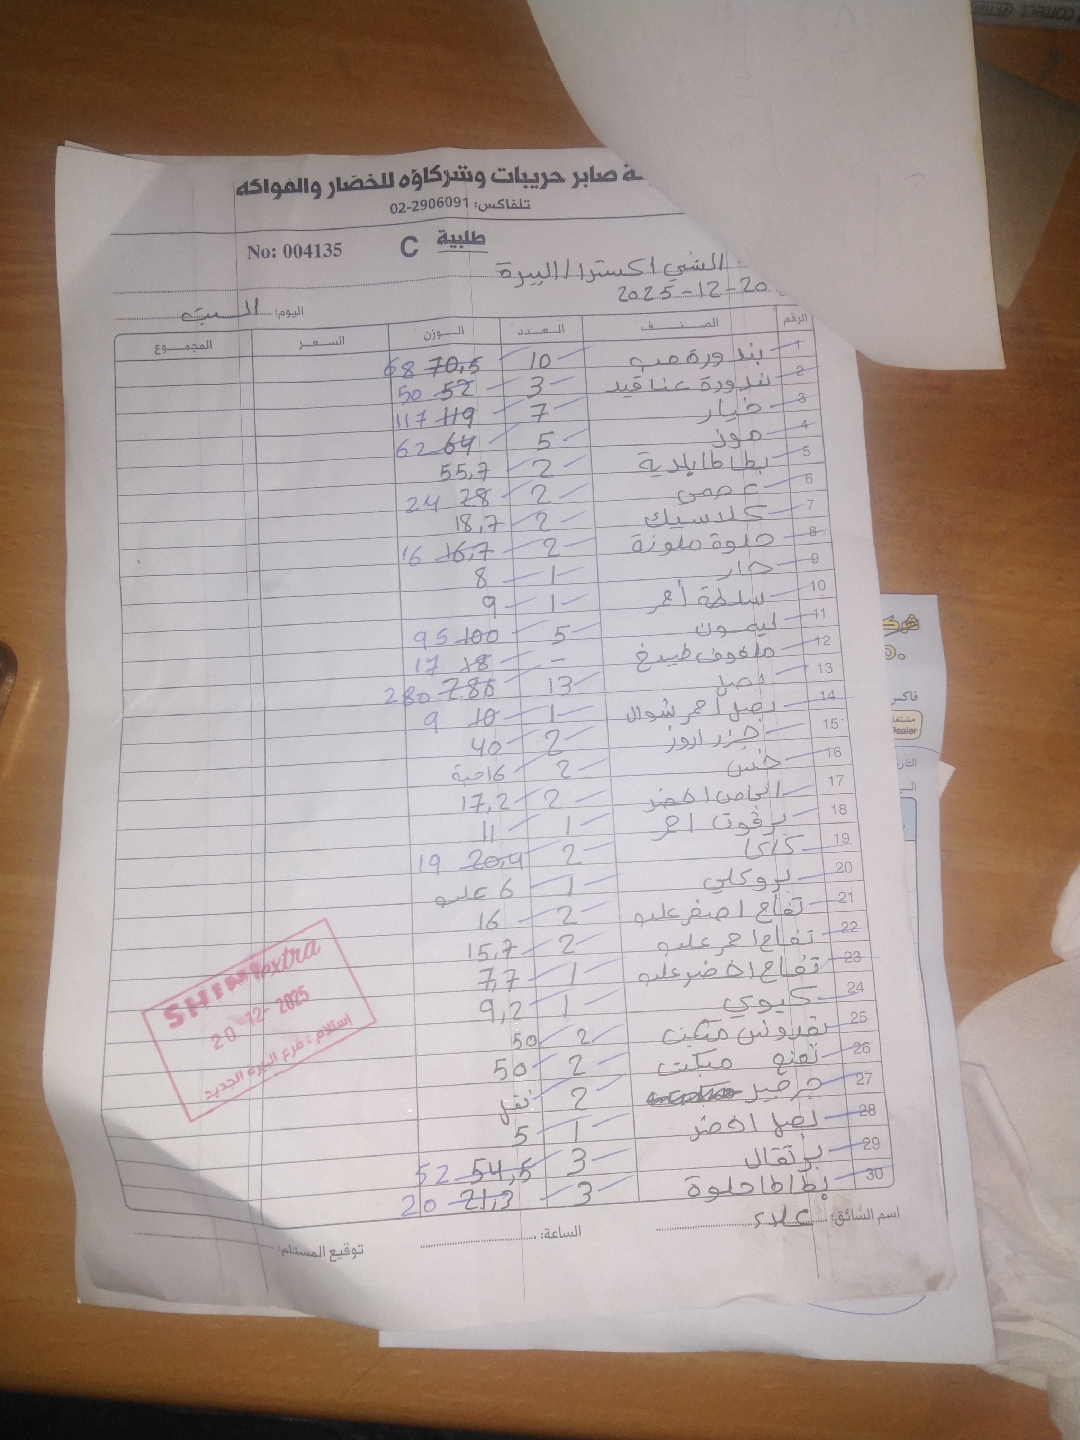 صابر حريبات وشركاؤه للخضار والفواكه
تلفاكس: 02-2906091
طلبية C No: 004135
الشني اكسترا / البيرة
2025-12-20
اليوم: السبت
الرقم الصنف العدد الوزن السعر المجموع
1 بندورة حب 10 70,5 68
2 بندورة عناقيد 3 52 50
3 خيار 7 119 117
4 موز 5 64 62
5 بطاطا بلدية 2 55,7
6 عجمي 2 28 24
7 كلاسيك 2 18,7
8 حلوة ملونة 2 16,7 16
9 حار 1 8
10 سلطة أحمر 1 9
11 ليمون 5 100 95
12 ملفوف طبيخ - 18 17
13 بصل 13 286 280
14 بصل احمر شوال 1 10 9
15 جزر اروز 2 40
16 خس 2 16 حبة
17 الخاص اخضر 2 17,2
18 برقوت احمر 1 11
19 كاكا 2 20,4 19
20 بروكلي 1 6 علب
21 تفاح اصفر علب 2 16
22 تفاح احمر علب 2 15,7
23 تفاح اخضر علب 1 7,7
24 كيوي 1 9,2
25 بقدونس مبكت 2 50
26 نعنع مبكت 2 50
27 جرجير 2
28 بصل اخضر 1 5
29 برتقال 3 54,5 52
30 بطاطا حلوة 3 21,3 20
اسم السائق: علاء الساعة: توقيع المستلم:
SHINI extra
20-12-2025
استلام: فرع البيره الجديد
فاكس
Dealer
correct